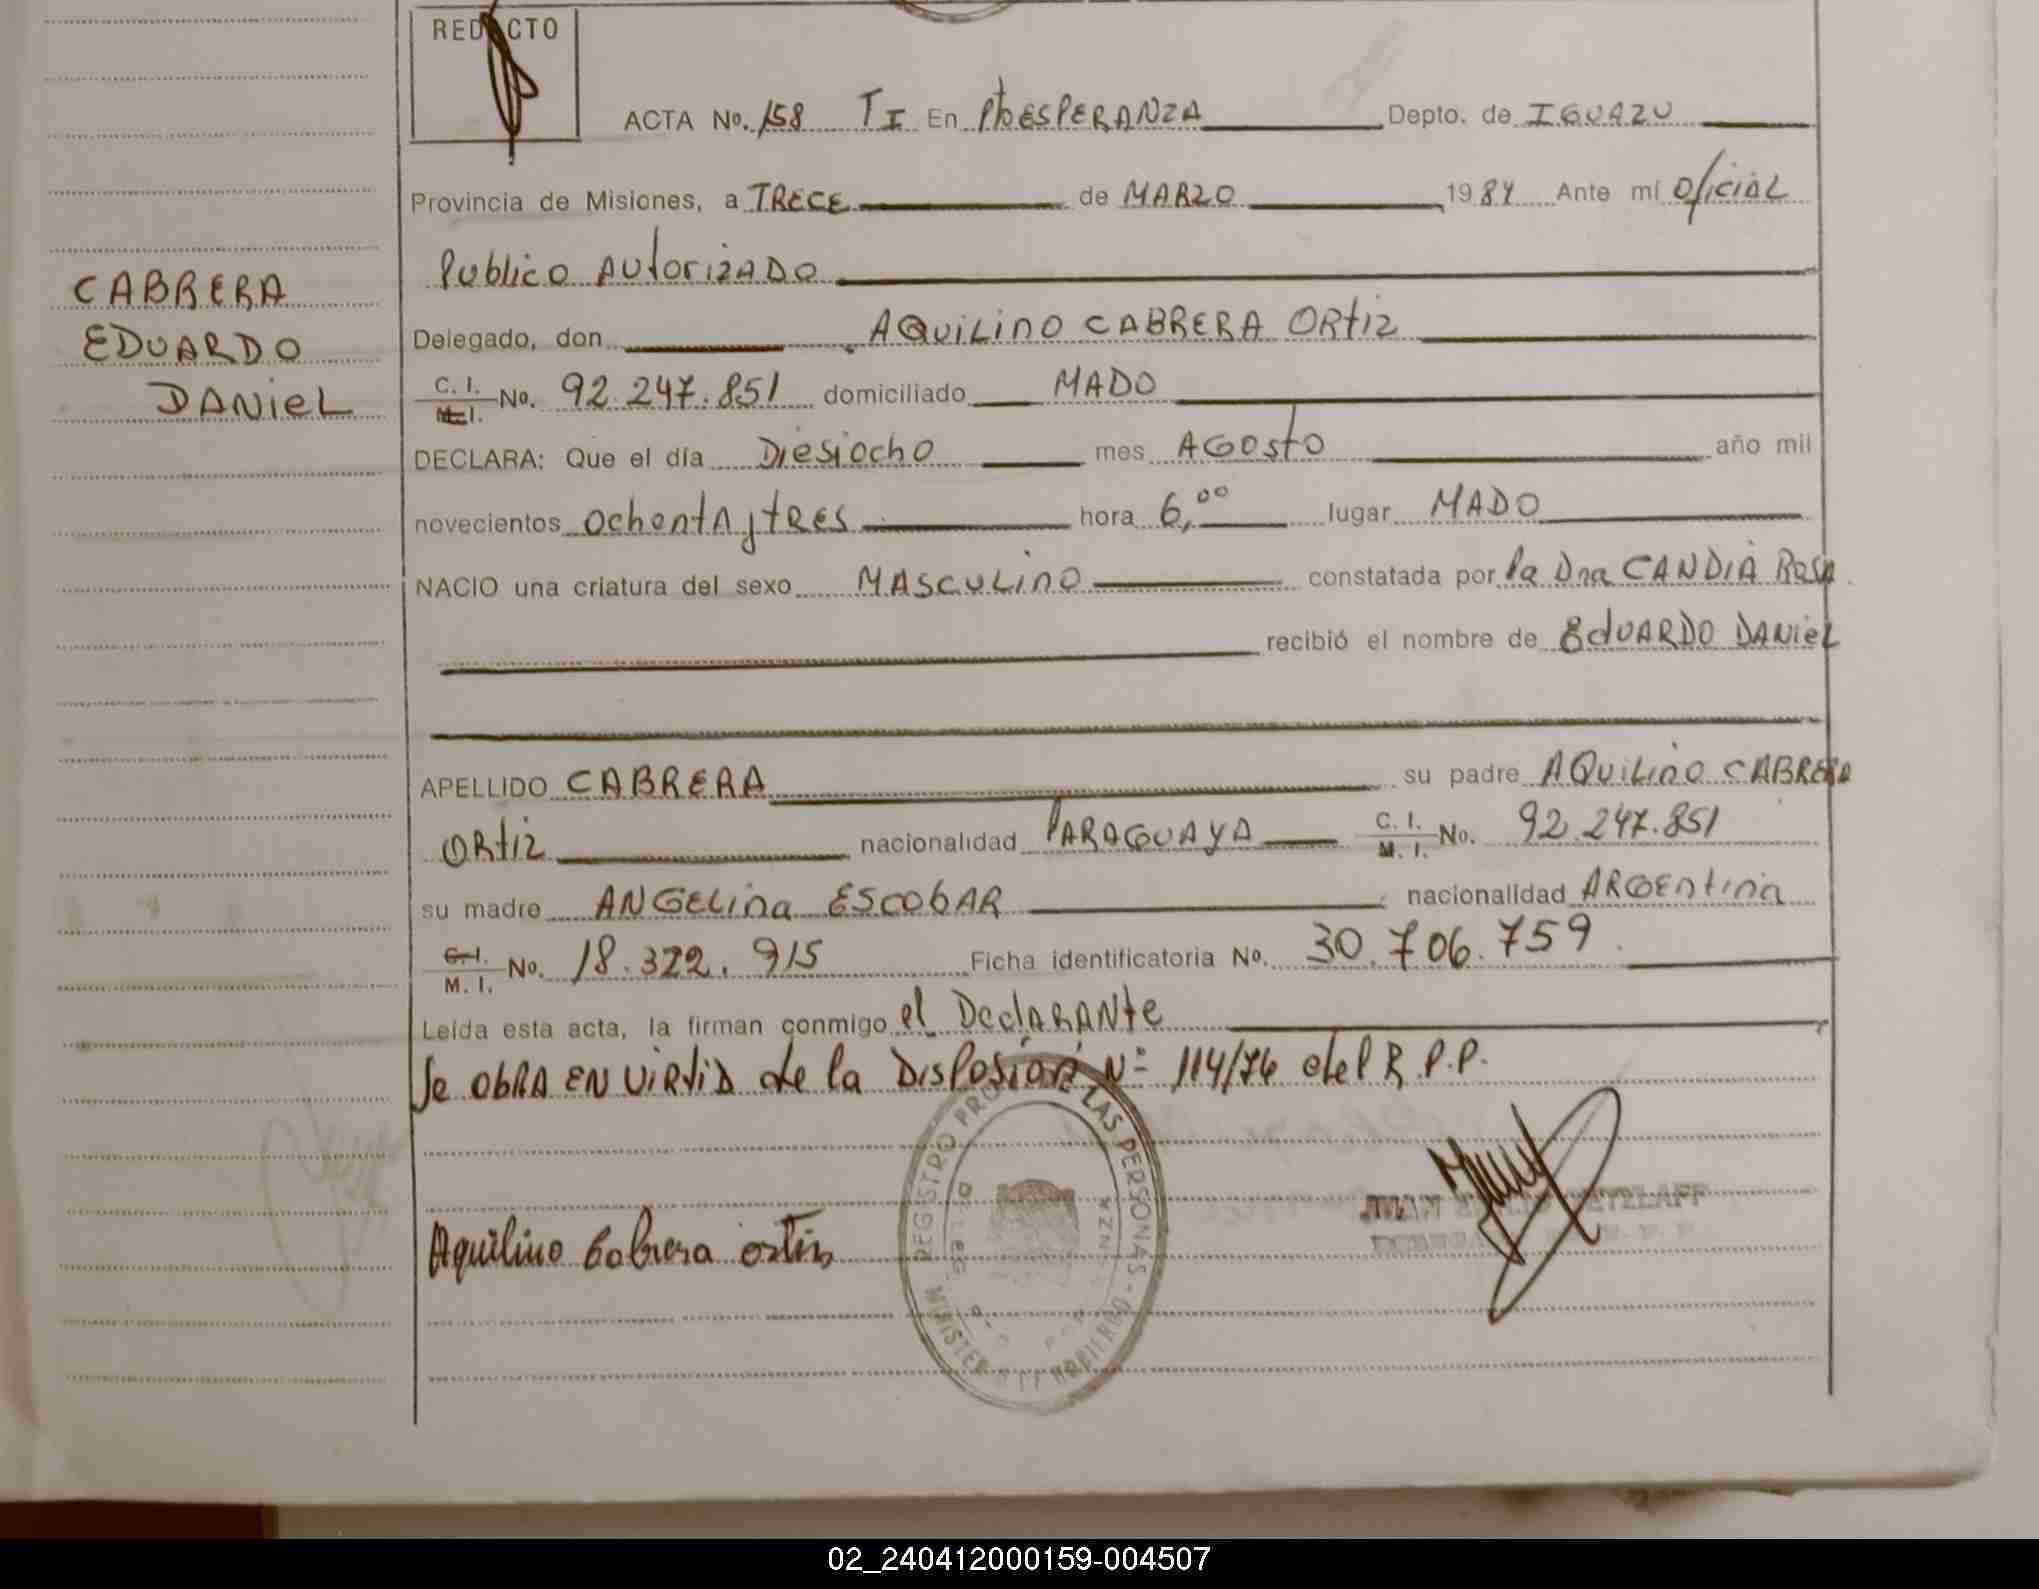 REDACTO
ACTA No. 158 T I En Pto ESPERANZA Depto. de IGUAZU
Provincia de Misiones, a TRECE de MARZO 1984 Ante mí Oficial
Publico AUtorizADO
CABRERA
EDUARDO
DANIEL
Delegado, don AQUiLinO CABRERA ORtiz
C. I. M. I. No. 92.247.851 domiciliado MADO
DECLARA: Que el día Diesiocho mes AGOStO año mil
novecientos OchentAytRES hora 6,00 lugar MADO
NACIO una criatura del sexo MASCULinO constatada por la Dra CANDIA Rosa
recibió el nombre de EdUARDO DANieL
APELLIDO CABRERA su padre AQUiLinO CABRERA
ORtiz nacionalidad PARAGUAYA C. I. M. I. No. 92.247.851
su madre ANGELina ESCObAR nacionalidad ARGEntina
C. I. M. I. No. 18.322.915 Ficha identificatoria No. 30.706.759
Leída esta acta, la firman conmigo el DeclARANte
Se ObRA EN ViRtiD de la DisPosion Nº 114/76 del R.P.P.
REGISTRO LAS PERSONAS
Aquilino Cabrera ortiz
02_240412000159-004507